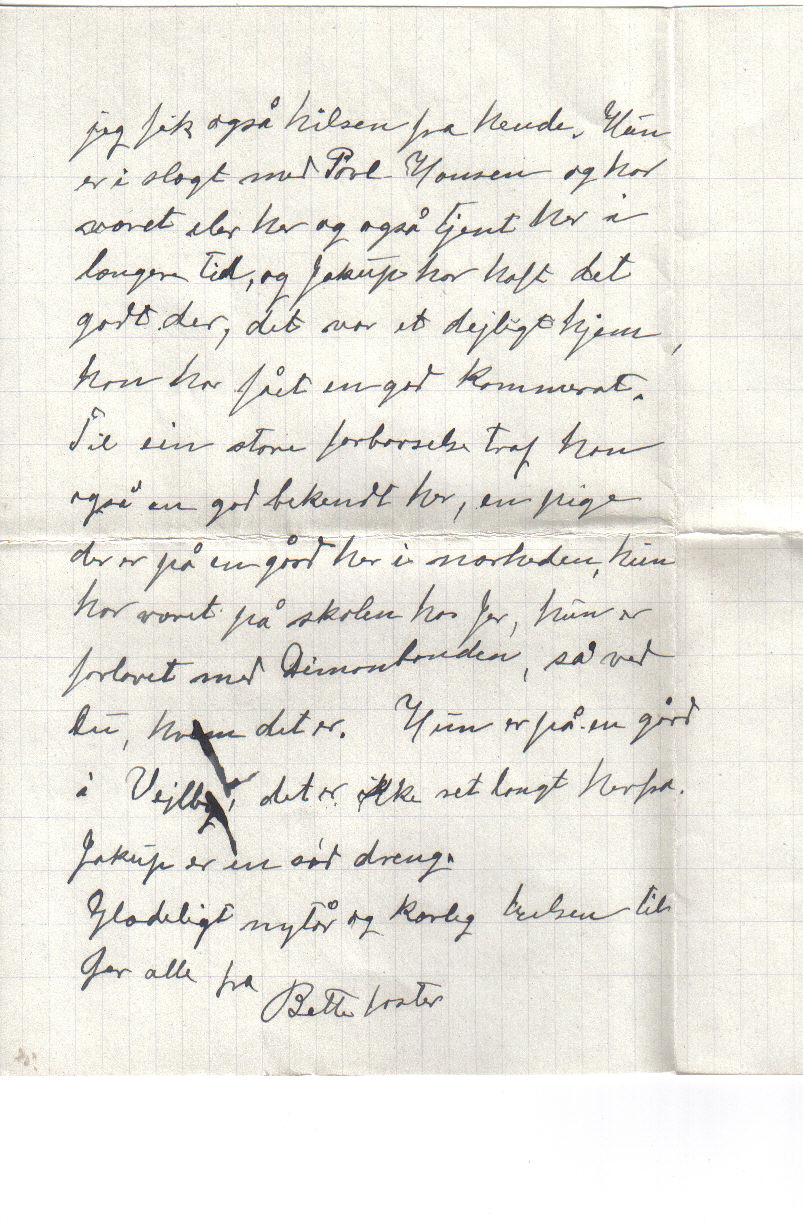 jeg fik også hilsen fra hende. Hun
er i slægt med Povl Hansen og har
været der her og også tjent her i
længere tid, og Jakup har haft det
godt der, det var et dejligt hjem,
han har fået en god kammerat.
Til sin store forbavselse traf han
også en god bekendt her, en pige
der er på en gård her i nærheden, hun
har været på skolen hos Jer, hun er
forlovet med Dimonbonden, så ved
Du, hvem det er. Hun er på en gård
i Vejlby, det er ikke ret langt herfra.
Jakup er en sød dreng.
Glædeligt nytår og kærlig hilsen til
Jer alle fra
Bette faster